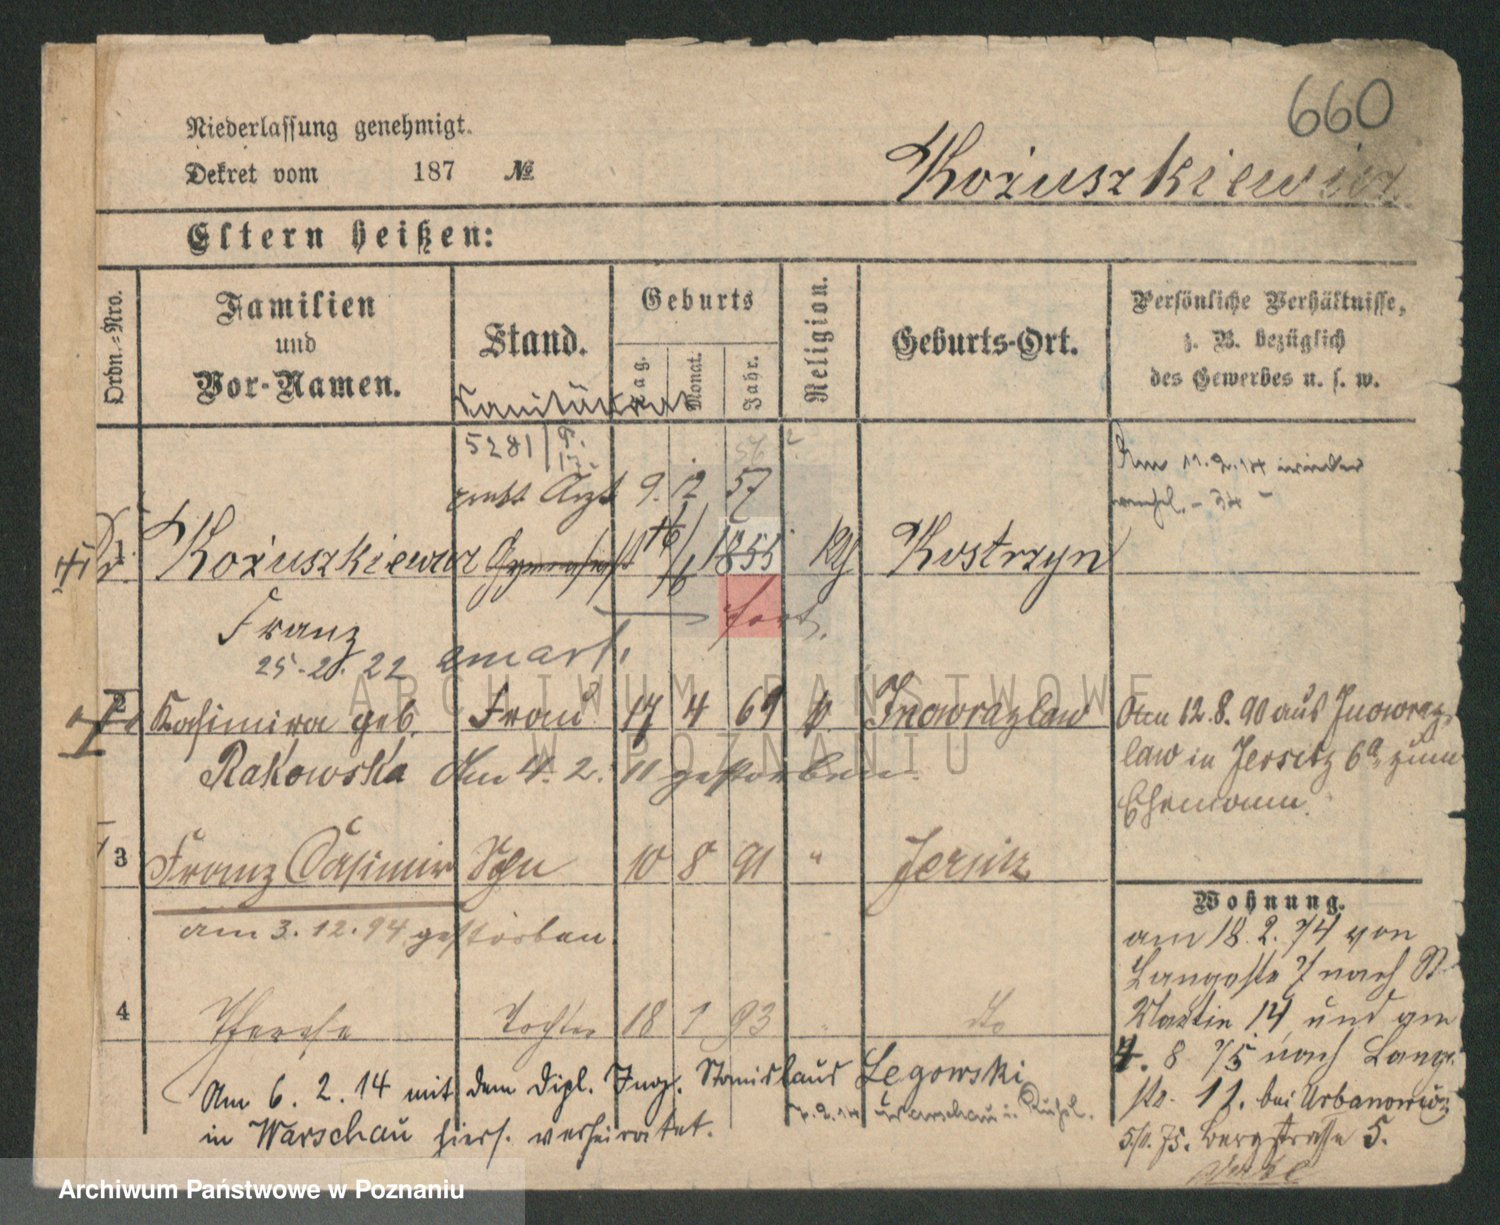 660
Niederlassung genehmigt.
Dekret vom 187 №
Kożuszkiewicz
Eltern heißen:
Ordn.-Nro.
Familien und Vor-Namen.
Stand.
Geburts
Tag.
Monat.
Jahr.
Religion.
Geburts-Ort.
Persönliche Verhältnisse,
z. B. bezüglich
des Gewerbes u. s. w.
Sanitätsrat
5281
prakt Arzt 9. 12 57
Am 11.2.14 wieder
1. Kożuszkiewicz 1855 Kostrzyn
Franz fort.
25.2.22 emart.
2 Kasimira geb. Frau 17 4 69 Inowrazlaw
Rakowska Am 4. 2. 11 gestorben.
Am 12.8.90 aus Inowraz-
law in Jersitz 6a zum
Ehemann.
3 Franz Casimir Sohn 10 8 91 " Jersitz
am 3.12.94 gestorben.
4 Therese Tochter 18 1 93 " do
Am 6. 2. 14 mit dem Dipl. Ing. Stanislaus Legowski
in Warschau hiers. verheiratet.
Warschau i. Rußl.
Wohnung.
am 18.2.74 von
Langestr 7 nach St.
Martin 14 und am
4. 8 75 nach Lange
str. 11. bei Urbanowicz
75. Bergstrasse 5.
ARCHIWUM PAŃSTWOWE
W POZNANIU
Archiwum Państwowe w Poznaniu